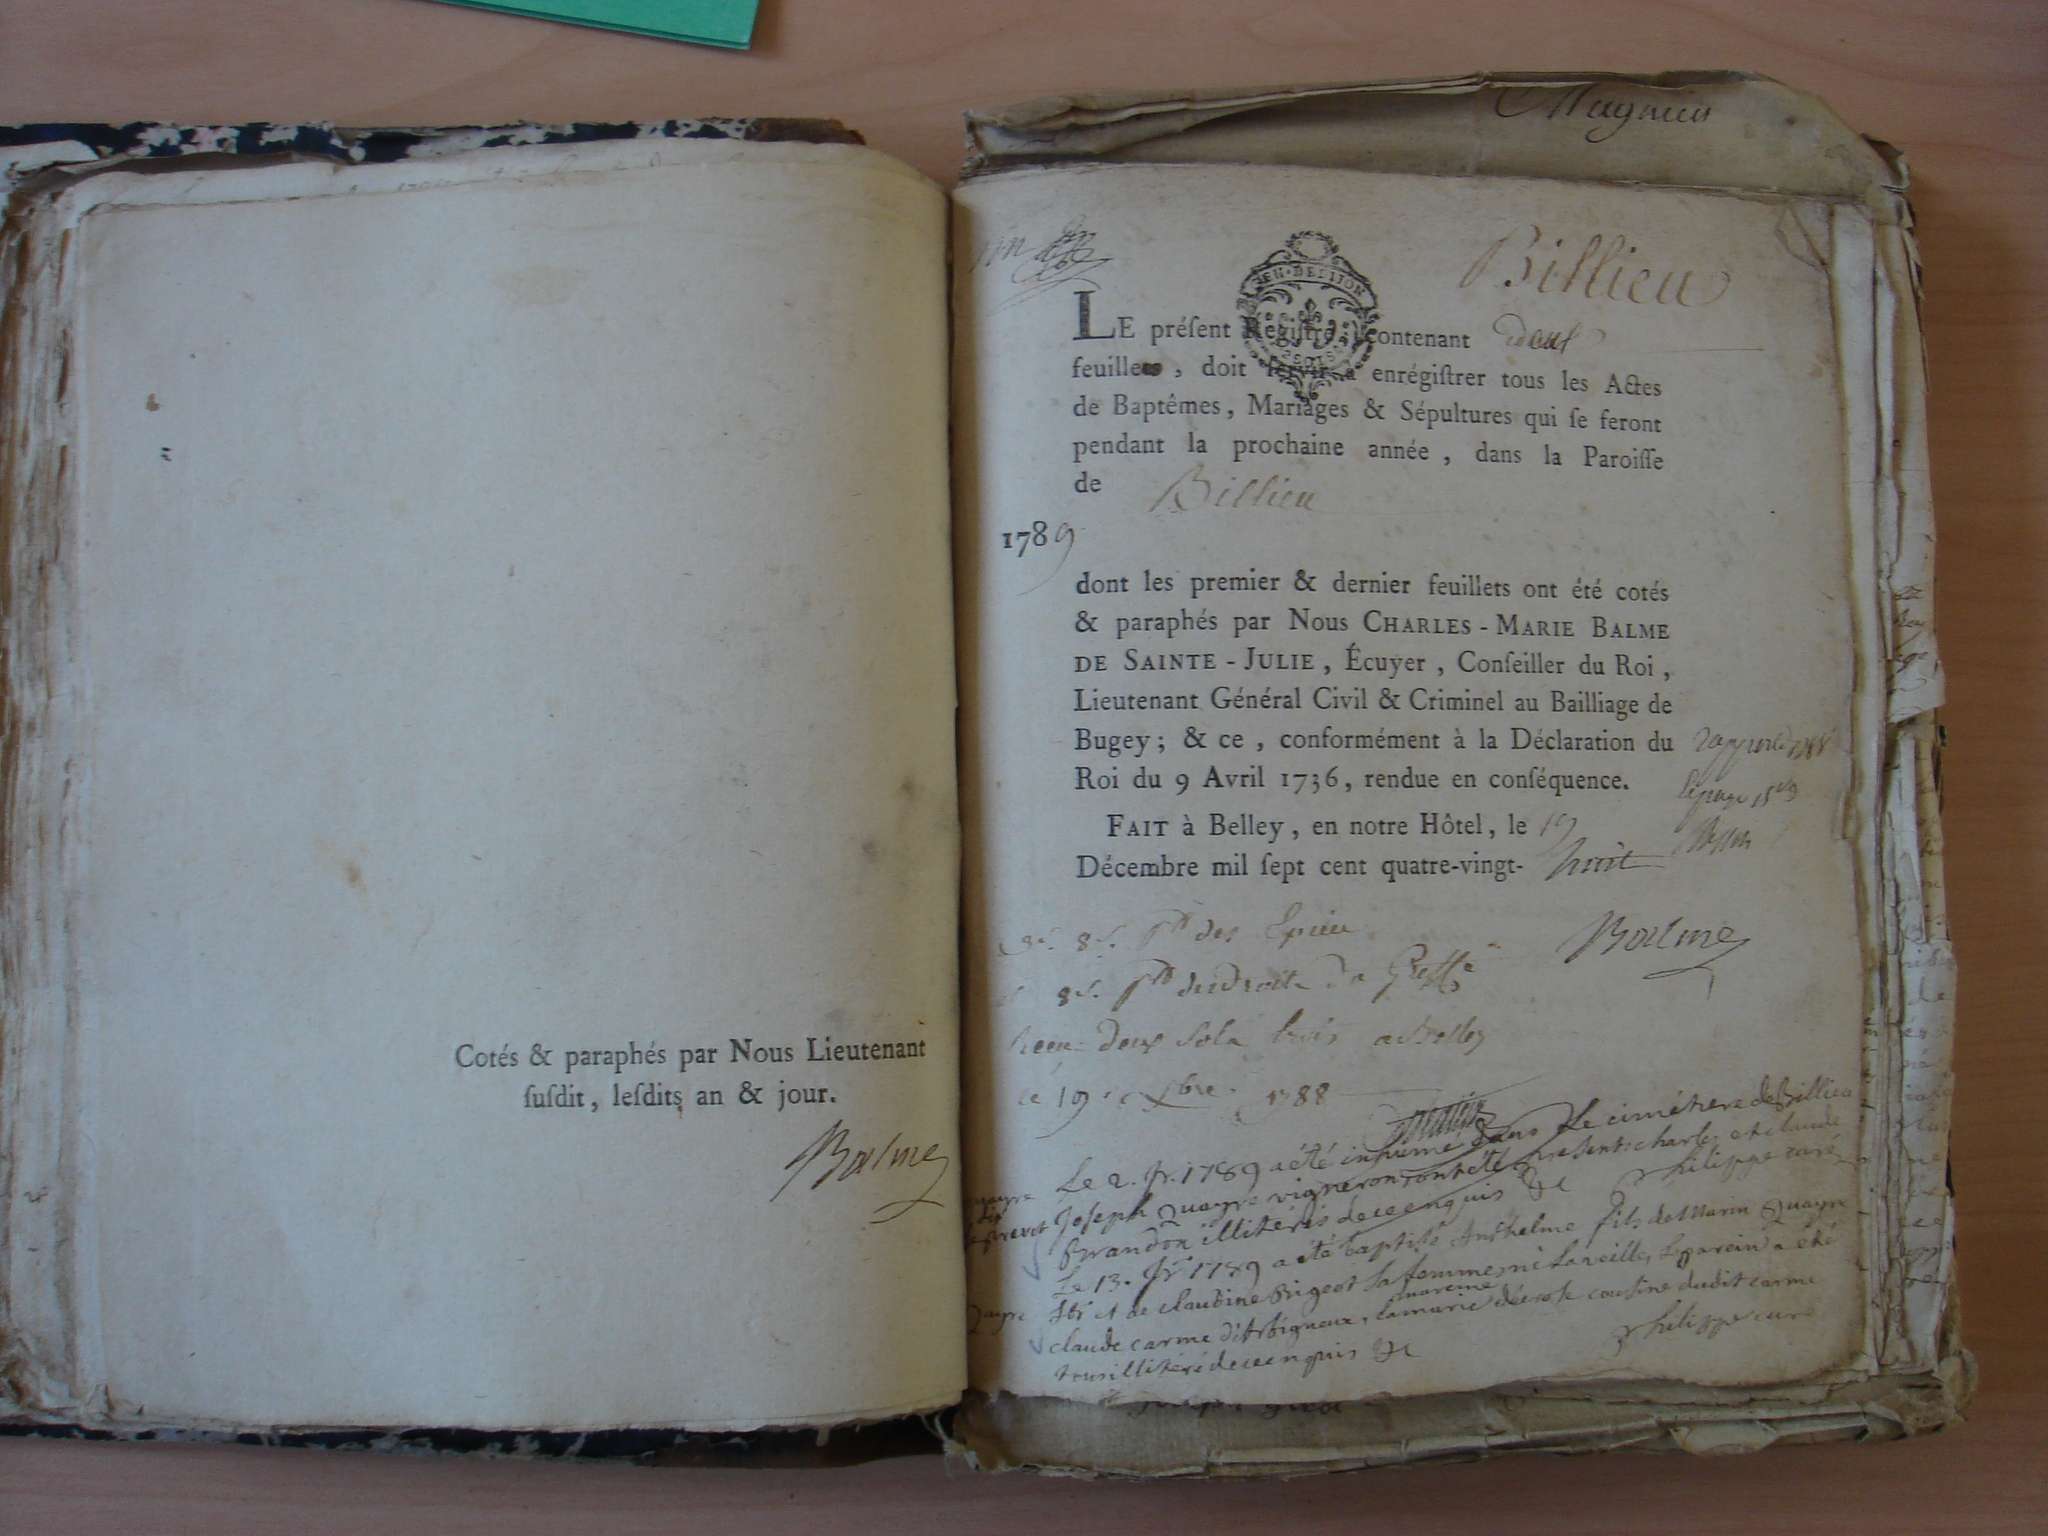 Cotés & paraphés par Nous Lieutenant
ſuſdit, leſdits an & jour.
Balme
Magnieu
Billieu
GEN·DE LION
LE préſent Regiſtre, contenant deux
feuillets, doit ſervir à enrégiſtrer tous les Actes
de Baptêmes, Mariages & Sépultures qui ſe feront
pendant la prochaine année, dans la Paroiſſe
de Billieu
1789
dont les premier & dernier feuillets ont été cotés
& paraphés par Nous CHARLES-MARIE BALME
DE SAINTE-JULIE, Écuyer, Conſeiller du Roi,
Lieutenant Général Civil & Criminel au Bailliage de
Bugey; & ce, conformément à la Déclaration du
Roi du 9 Avril 1736, rendue en conſéquence.
FAIT à Belley, en notre Hôtel, le 19
Décembre mil ſept cent quatre-vingt-huit
Balme
8s.
8s. du Greffe
Receu deux sols trois a Belley
le 19 xbre 1788
Le 2. jr. 1789 a été inhumé dans le cimétiere de Billieu
quayre dit prevot Joseph quayre vigneron ont été presents charles et claude
Brandon illitérés de ce enquis &c philippe curé
Le 13. jr 1789 a été baptisé Anthelme fils de Marin quayre
quayre et de claudine Bigeot sa femme, né la veille, le parein a été
claude carme d'Arbigneux, la mareine marie cousine dudit carme
tous illitéré de ce enquis &c philippe curé